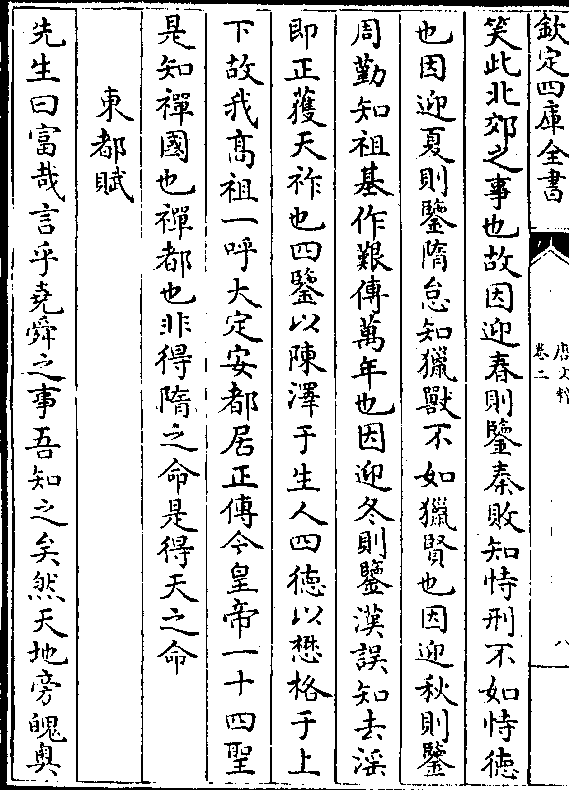 欽定四庫全書
唐文粹
卷二
八
笑此北郊之事也故因迎春則鑒秦敗知恃刑不如恃德
也因迎夏則鑒隋怠知獵獸不如獵賢也因迎秋則鑒
周勤知祖基作艱傳萬年也因迎冬則鑒漢誤知去淫
即正獲天祚也四鑒以陳澤于生人四德以懋格于上
下故我髙祖一呼大定安都居正傳今皇帝一十四聖
是知禪國也禪都也非得隋之命是得天之命
東都賦
先生曰富哉言乎堯舜之事吾知之矣然天地旁魄輿